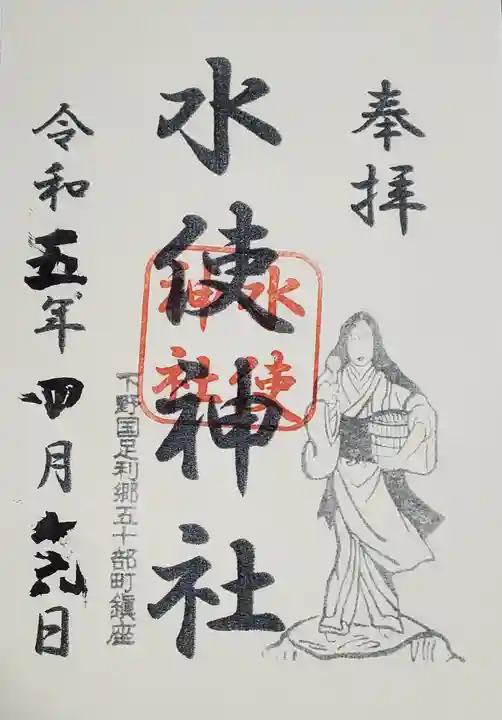 奉拝
水使神社
水使
神社
下野国足利郷五十部町鎮座
令和五年四月十六日